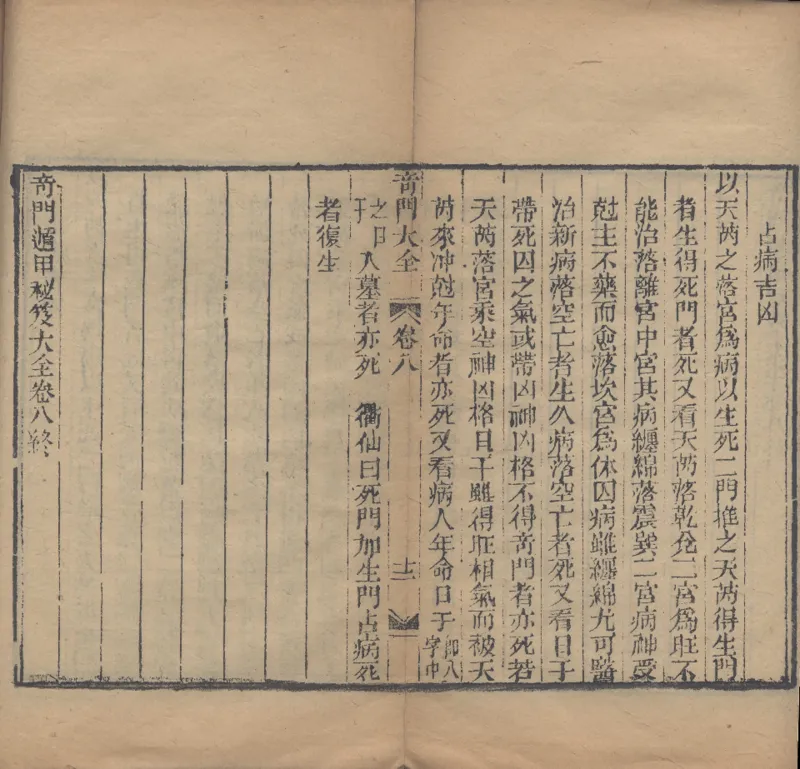 占病吉凶
以天芮之落宮爲病以生死二門推之天芮得生門
者生得死門者死又看天芮落乾兌二宮爲旺不
能治落離宮中宮其病纏綿落震巽二宮病神受
尅主不藥而愈落坎宮爲休囚病雖纏綿尤可醫
治新病落空亡者生久病落空亡者死又看日干
帶死囚之氣或帶凶神凶格不得奇門者亦死若
天芮落宮乘空神凶格日干雖得旺相氣而被天
芮來冲尅年命者亦死又看病人年命日干即八字中
奇門大全 卷八 十二
之日干入墓者亦死 衢仙曰死門加生門占病死
者復生
奇門遁甲秘笈大全卷八終